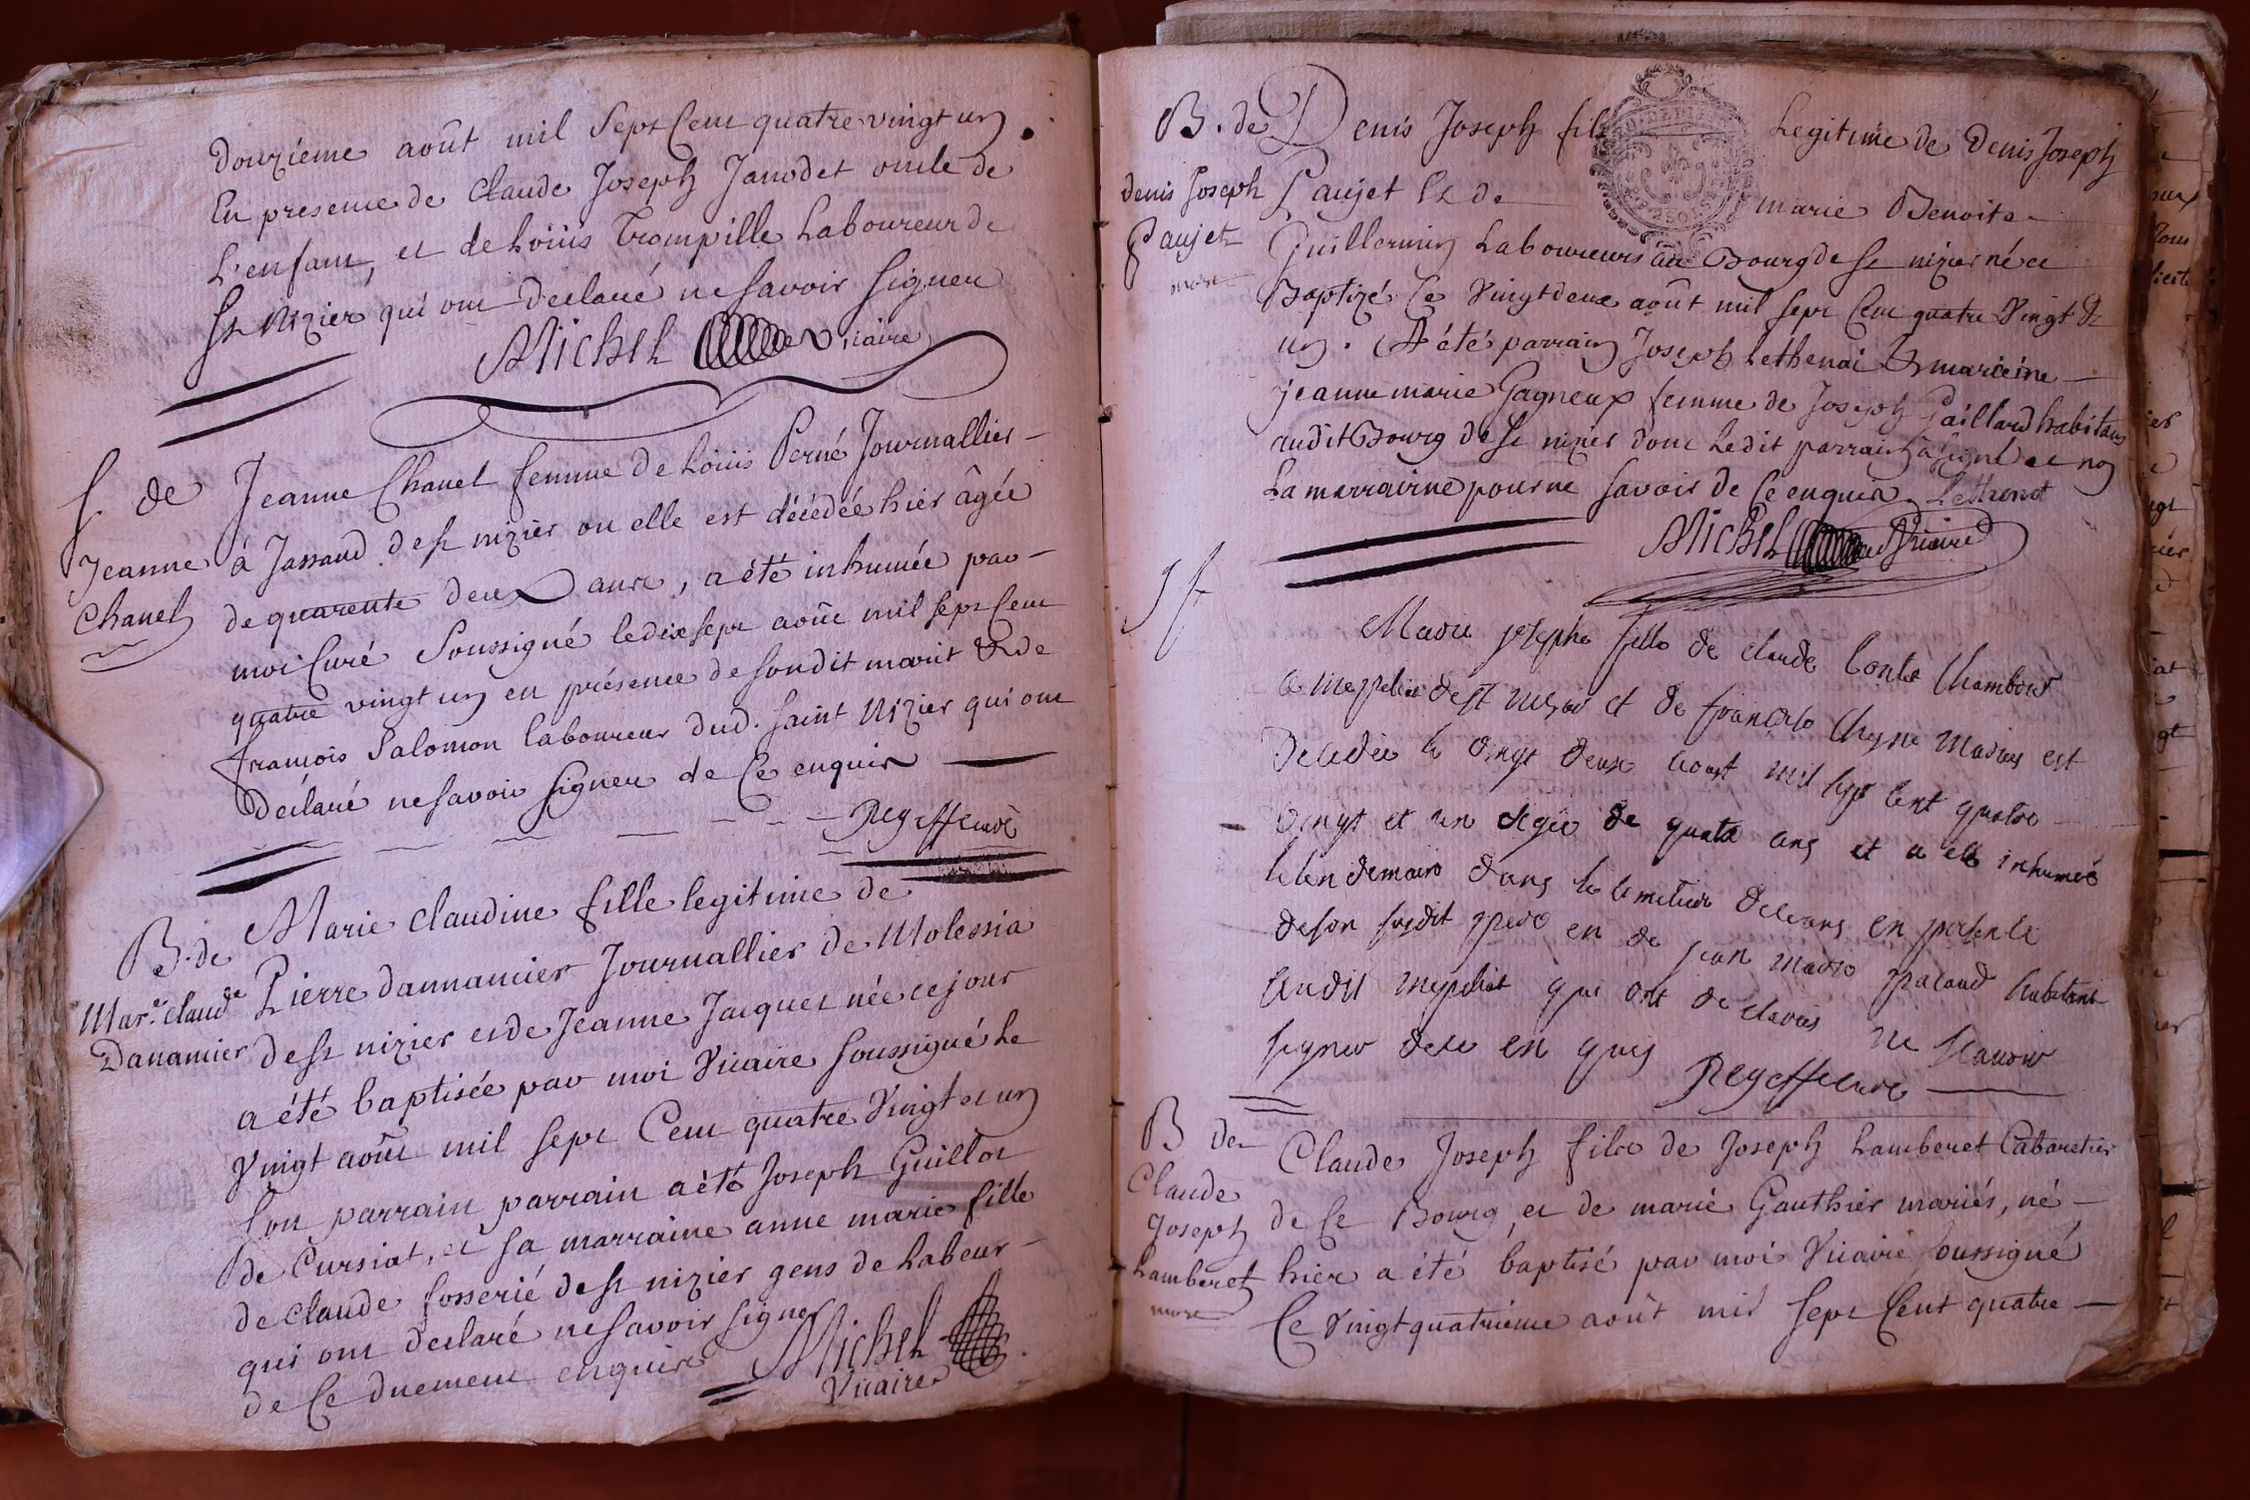 Douzieme août mil Sept Cent quatre vingt un
En presence de Claude Joseph Janodet oncle de
L'enfant, et de Loüis Trompille Laboureur de
St Nizier qui ont declaré ne Savoir Signer
Michel Vicaire
S. de
Jeanne
Chanel
Jeanne Chanel femme de Loüis Perné Journallier
à Jassaud de St nizier ou elle est décédée hier âgée
de quarente deux ans, a été inhumée par
moi Curé Soussigné le dix sept août mil Sept Cent
quatre vingt un en présence de sondit marit & de
françois Salomon laboureur dud. Saint Nizier qui ont
Déclaré ne Savoir Signer de Ce enquis
Reyffeure
B. de
Mar.e claud.e
Danamier
Marie Claudine fille legitime de
Pierre Dannamier Journallier de Molessia
de St nizier et de Jeanne Jacquet née ce jour
a été baptisée par moi Vicaire Soussigné Le
Vingt août mil Sept Cent quatre Vingt et un
Son parrain parrain a été Joseph Guillot
de Cursiat, et sa marraine anne marie fille
de Claude fosserié de St nizier gens de Labeur
qui ont declaré ne Savoir Signer
de Ce duement enquis Michel
Vicaire
B. de
denis Joseph
Paujet
mort
Denis Joseph fils Legitime de Denis Joseph
Paujet Et de marie Benoite
Guillermin Laboureurs au Bourg de St nizier né et
Baptizé le Vingt deux août mil Sept Cent quatre Vingt &
un. A été parrain Joseph Lethenoi & marreine
jeanne marie Gagneux femme de Joseph Gaillard habitans
audit Bourg de St nizier dont Ledit parrain à Signé et non
La marrainne pour ne Savoir de Ce enquis Lethenot
Michel Vicaire
Marie josephe fille de claude Conte
a de st nizier et de françoise mariés est
decedée le vingt deux aoust mil sept cent quatre
vingt et un agée de quatre ans et a eté inhumée
le lendemain dans le cimetiere de ceans en presence
de son susdit pere en de jean marie pacaud habitant
audit qui ont declarés ne scavoir
signer dece en quis Reyffeure
B de
Claude
Joseph
Lamberet
mort
Claude Joseph fils de Joseph Lamberet Cabaretier
de Ce Bourg, et de marie Gauthier mariés, né
hier a été baptisé par moi Vicaire Soussigné
Ce Vingt quatrieme août mil Sept Cent quatre